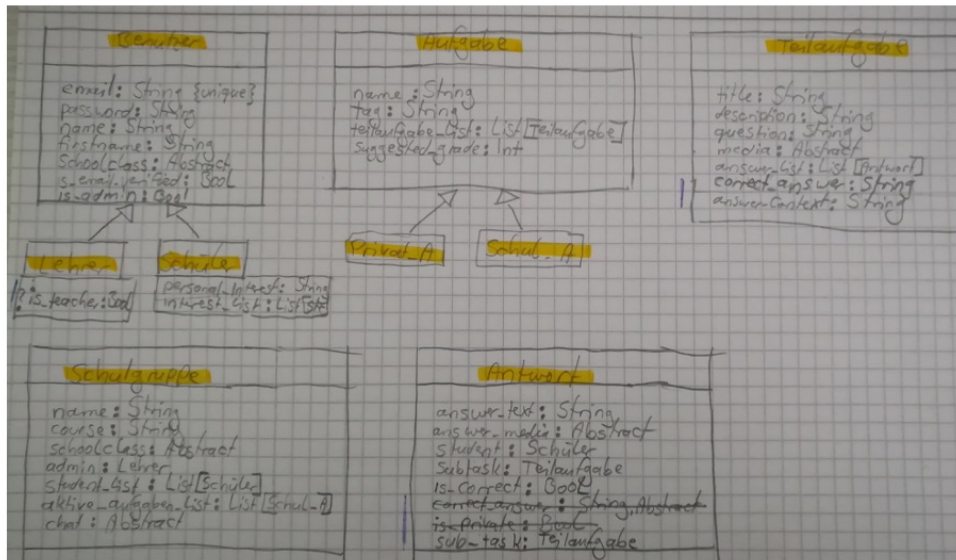 Benutzer
email: String {unique}
password: String
name: String
firstname: String
schoolclass: Abstract
is_email_verified: Bool
is_admin: Bool
Lehrer
? is_teacher: Bool
Schüler
personal_interest: String
interest_list: List[Str]
Aufgabe
name: String
tag: String
teilaufgabe_list: List[Teilaufgabe]
suggested_grade: Int
Privat_A
Schul_A
Teilaufgabe
title: String
description: String
question: String
media: Abstract
answer_list: List [Antwort]
correct_answer: String
answer_Context: String
Schulgruppe
name: String
course: String
schoolclass: Abstract
admin: Lehrer
student_list: List[Schüler]
aktive_aufgaben_list: List[Schul_A]
chat: Abstract
Antwort
answer_text: String
answer_media: Abstract
student: Schüler
subtask: Teilaufgabe
is_correct: Bool
correct_answer: String, Abstract
is_private: Bool
sub_task: Teilaufgabe